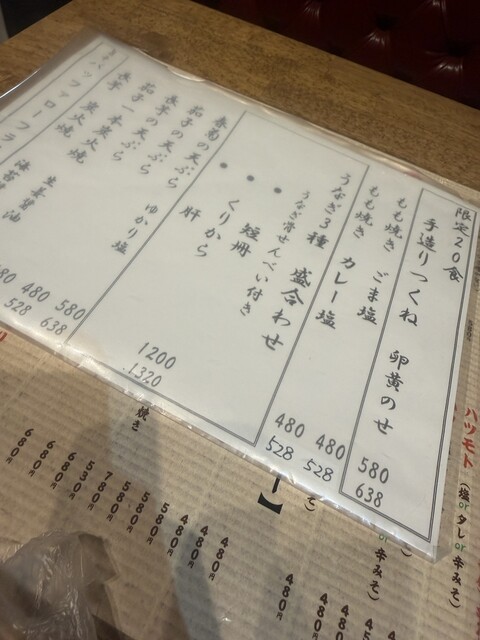 限定20食
手造りつくね 卵黄のせ 580
638
もも焼き ごま塩 480
528
もも焼き カレー塩 480
528
うなぎ3種 盛合わせ
うなぎ骨せんべい付き
• 短冊
• くりから
• 肝
1200
1.320
春菊の天ぷら
茄子の天ぷら
長芋の天ぷら ゆかり塩 580
638
茄子一本炭火焼 生姜醤油 480
528
長芋 炭火焼
バッファローフラ
ハツモト (塩or タレ or 辛みそ)
or 辛みそ)
みそ)
焼き
480円
480円
480円
580円
580円
780円
530円
680円
680円
680円
480
480